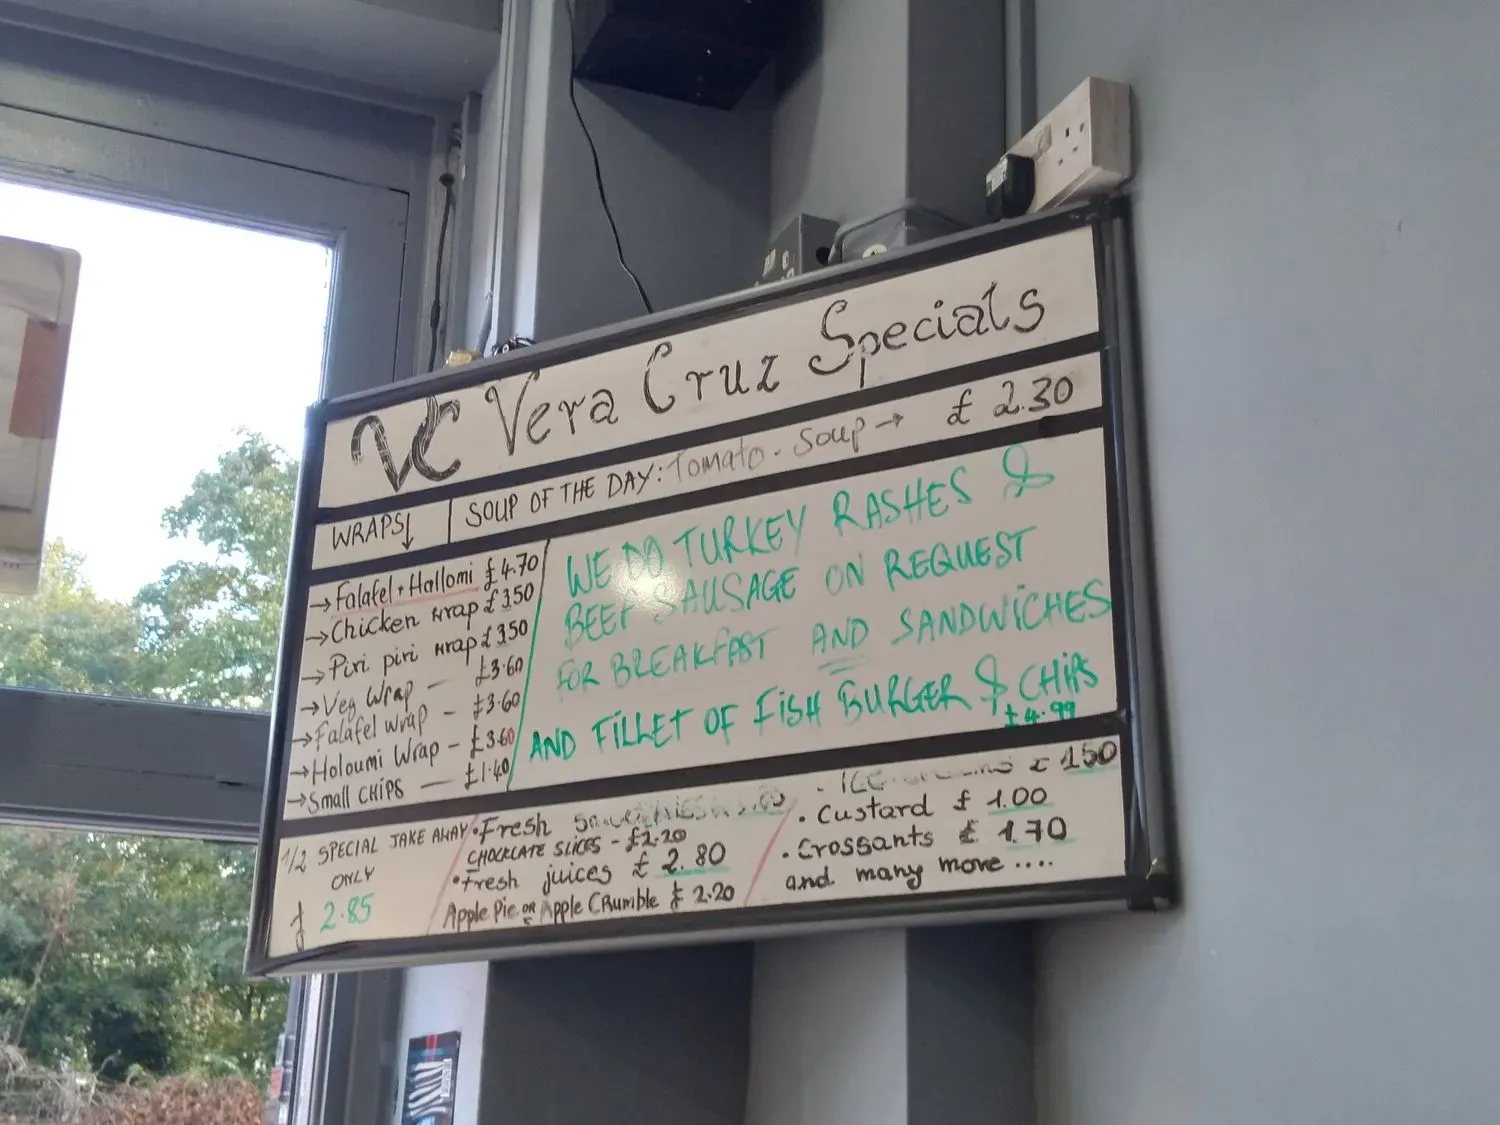 VC Vera Cruz Specials
WRAPS↓
SOUP OF THE DAY: Tomato - Soup → £ 2.30
→ Falafel + Hallomi £4.70
→ Chicken wrap £350
→ Piri piri wrap £350
→ Veg Wrap — £3.60
→ Falafel wrap - £3.60
→ Holoumi Wrap - £3.60
→ Small CHIPS — £1.40
WE DO TURKEY RASHES &
BEEF SAUSAGE ON REQUEST
FOR BREAKFAST AND SANDWiCHES
AND FILLET OF FISH BURGER & CHiPS
£4.99
1/2 SPECIAL TAKE AWAY
ONLY
£ 2.85
• Fresh
CHOCKLATE SLICES - £2.20
• Fresh juices £ 2.80
Apple Pie OR Apple CRumble £ 2.20
• ICE 150
• Custard £ 1.00
• Crossants £ 1.70
and many more ....